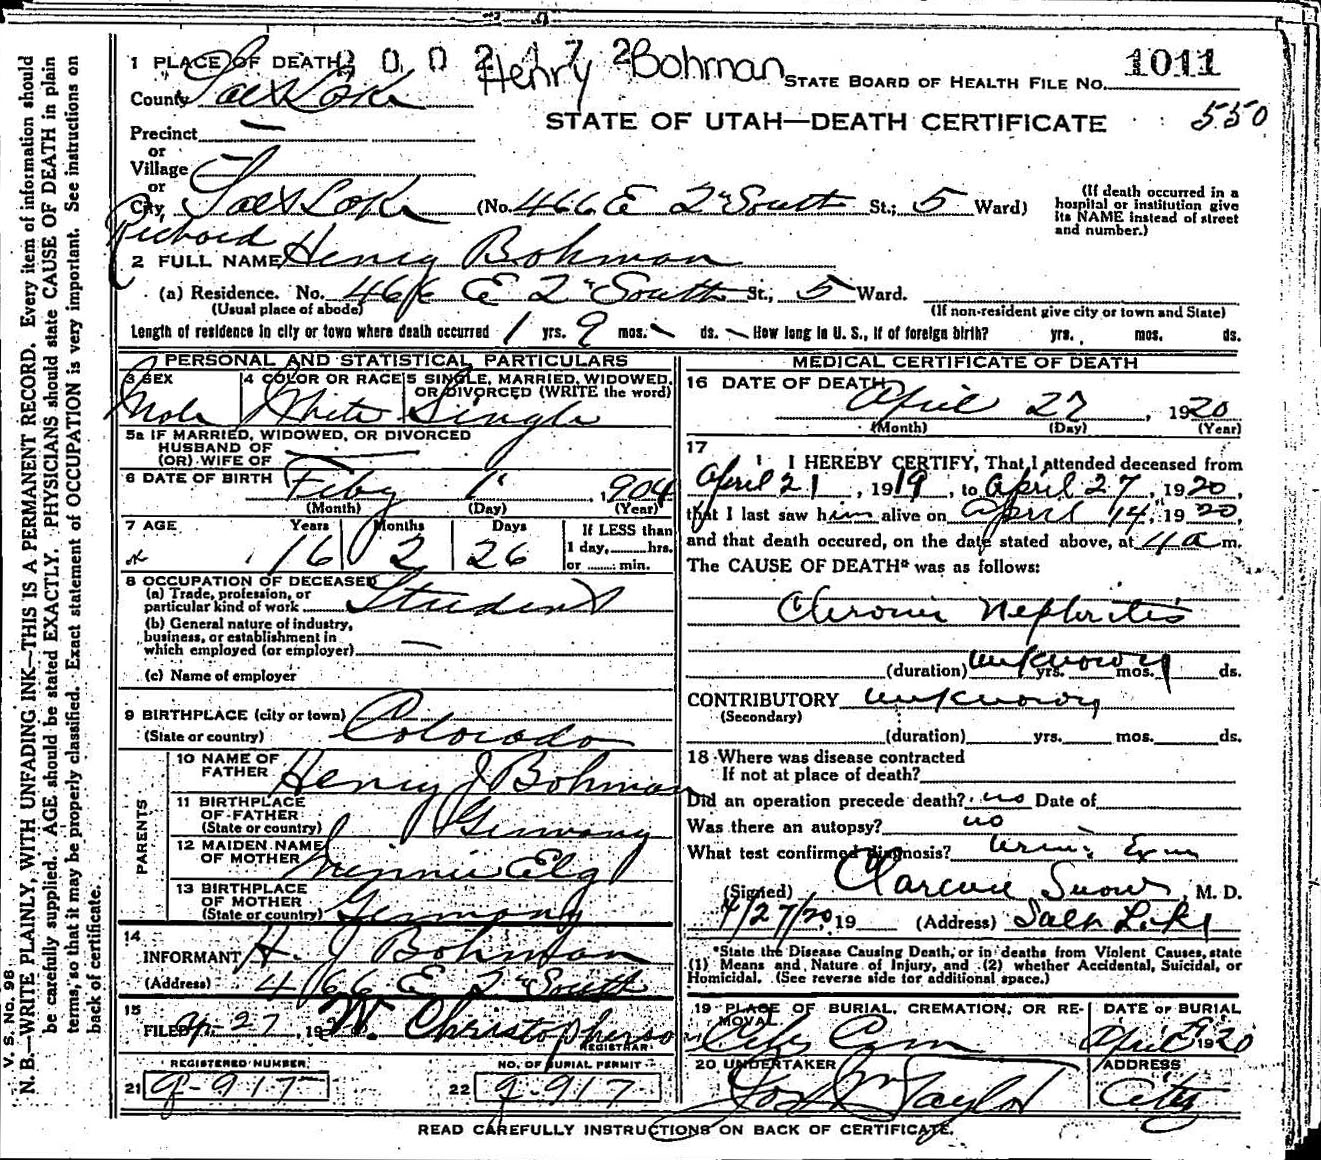 1 PLACE OF DEATH
2 0 0 2 1 7 2
Henry Bohman
STATE BOARD OF HEALTH FILE NO. 1011
County Salt Lake
STATE OF UTAH—DEATH CERTIFICATE
550
Precinct —
or
Village —
or
City Salt Lake (No. 466 E 2" South St.; 5 Ward)
(If death occurred in a
hospital or institution give
its NAME instead of street
and number.)
Richard
2 FULL NAME Henry Bohman
(a) Residence. No. 466 E 2" South St., 5 Ward.
(Usual place of abode)
(If non-resident give city or town and State)
Length of residence in city or town where death occurred 1 yrs. 9 mos. – ds. – How long in U. S., if of foreign birth? yrs. mos. ds.
PERSONAL AND STATISTICAL PARTICULARS
3 SEX
Male
4 COLOR OR RACE
White
5 SINGLE, MARRIED, WIDOWED,
OR DIVORCED (WRITE the word)
Single
5a IF MARRIED, WIDOWED, OR DIVORCED
HUSBAND OF
(OR) WIFE OF —
6 DATE OF BIRTH Feby 1", 1904
(Month) (Day) (Year)
7 AGE Years Months Days
16 2 26
If LESS than
1 day, ...... hrs.
or ...... min.
8 OCCUPATION OF DECEASED
(a) Trade, profession, or
particular kind of work Student
(b) General nature of industry,
business, or establishment in
which employed (or employer) —
(c) Name of employer
9 BIRTHPLACE (city or town)
(State or country) Colorado
PARENTS
10 NAME OF
FATHER Henry J Bohman
11 BIRTHPLACE
OF FATHER
(State or country) Germany
12 MAIDEN NAME
OF MOTHER Minnie Elg
13 BIRTHPLACE
OF MOTHER
(State or country) Germany
14
INFORMANT H. J Bohman
(Address) 466 E 2" South
15
FILED Ap-27, 1920 W. Christopherson
REGISTRAR
REGISTERED NUMBER.
21 9-917
NO. OF BURIAL PERMIT
22 9-917
MEDICAL CERTIFICATE OF DEATH
16 DATE OF DEATH
April 27, 1920
(Month) (Day) (Year)
17
I HEREBY CERTIFY, That I attended deceased from
April 21, 1919, to April 27, 1920,
that I last saw him alive on April 14, 1920,
and that death occured, on the date stated above, at 4 a m.
The CAUSE OF DEATH* was as follows:
Chronic Nephritis
(duration) unknown yrs. mos. ds.
CONTRIBUTORY unknown
(Secondary)
(duration) yrs. mos. ds.
18 Where was disease contracted
If not at place of death?
Did an operation precede death? no Date of
Was there an autopsy? no
What test confirmed diagnosis? Urine Exam
(Signed) Clarence Snow, M. D.
4/27/20, 19 (Address) Salt Lake
*State the Disease Causing Death, or in deaths from Violent Causes, state
(1) Means and Nature of Injury, and (2) whether Accidental, Suicidal, or
Homicidal. (See reverse side for additional space.)
19 PLACE OF BURIAL, CREMATION, OR RE-
MOVAL
City Cem
DATE OF BURIAL
April 1920
20 UNDERTAKER
Taylor
ADDRESS
City
READ CAREFULLY INSTRUCTIONS ON BACK OF CERTIFICATE.
V. S. No. 98
N. B.—WRITE PLAINLY, WITH UNFADING INK—THIS IS A PERMANENT RECORD. Every item of information should
be carefully supplied. AGE should be stated EXACTLY. PHYSICIANS should state CAUSE OF DEATH in plain
terms, so that it may be properly classified. Exact statement of OCCUPATION is very important. See instructions on
back of certificate.